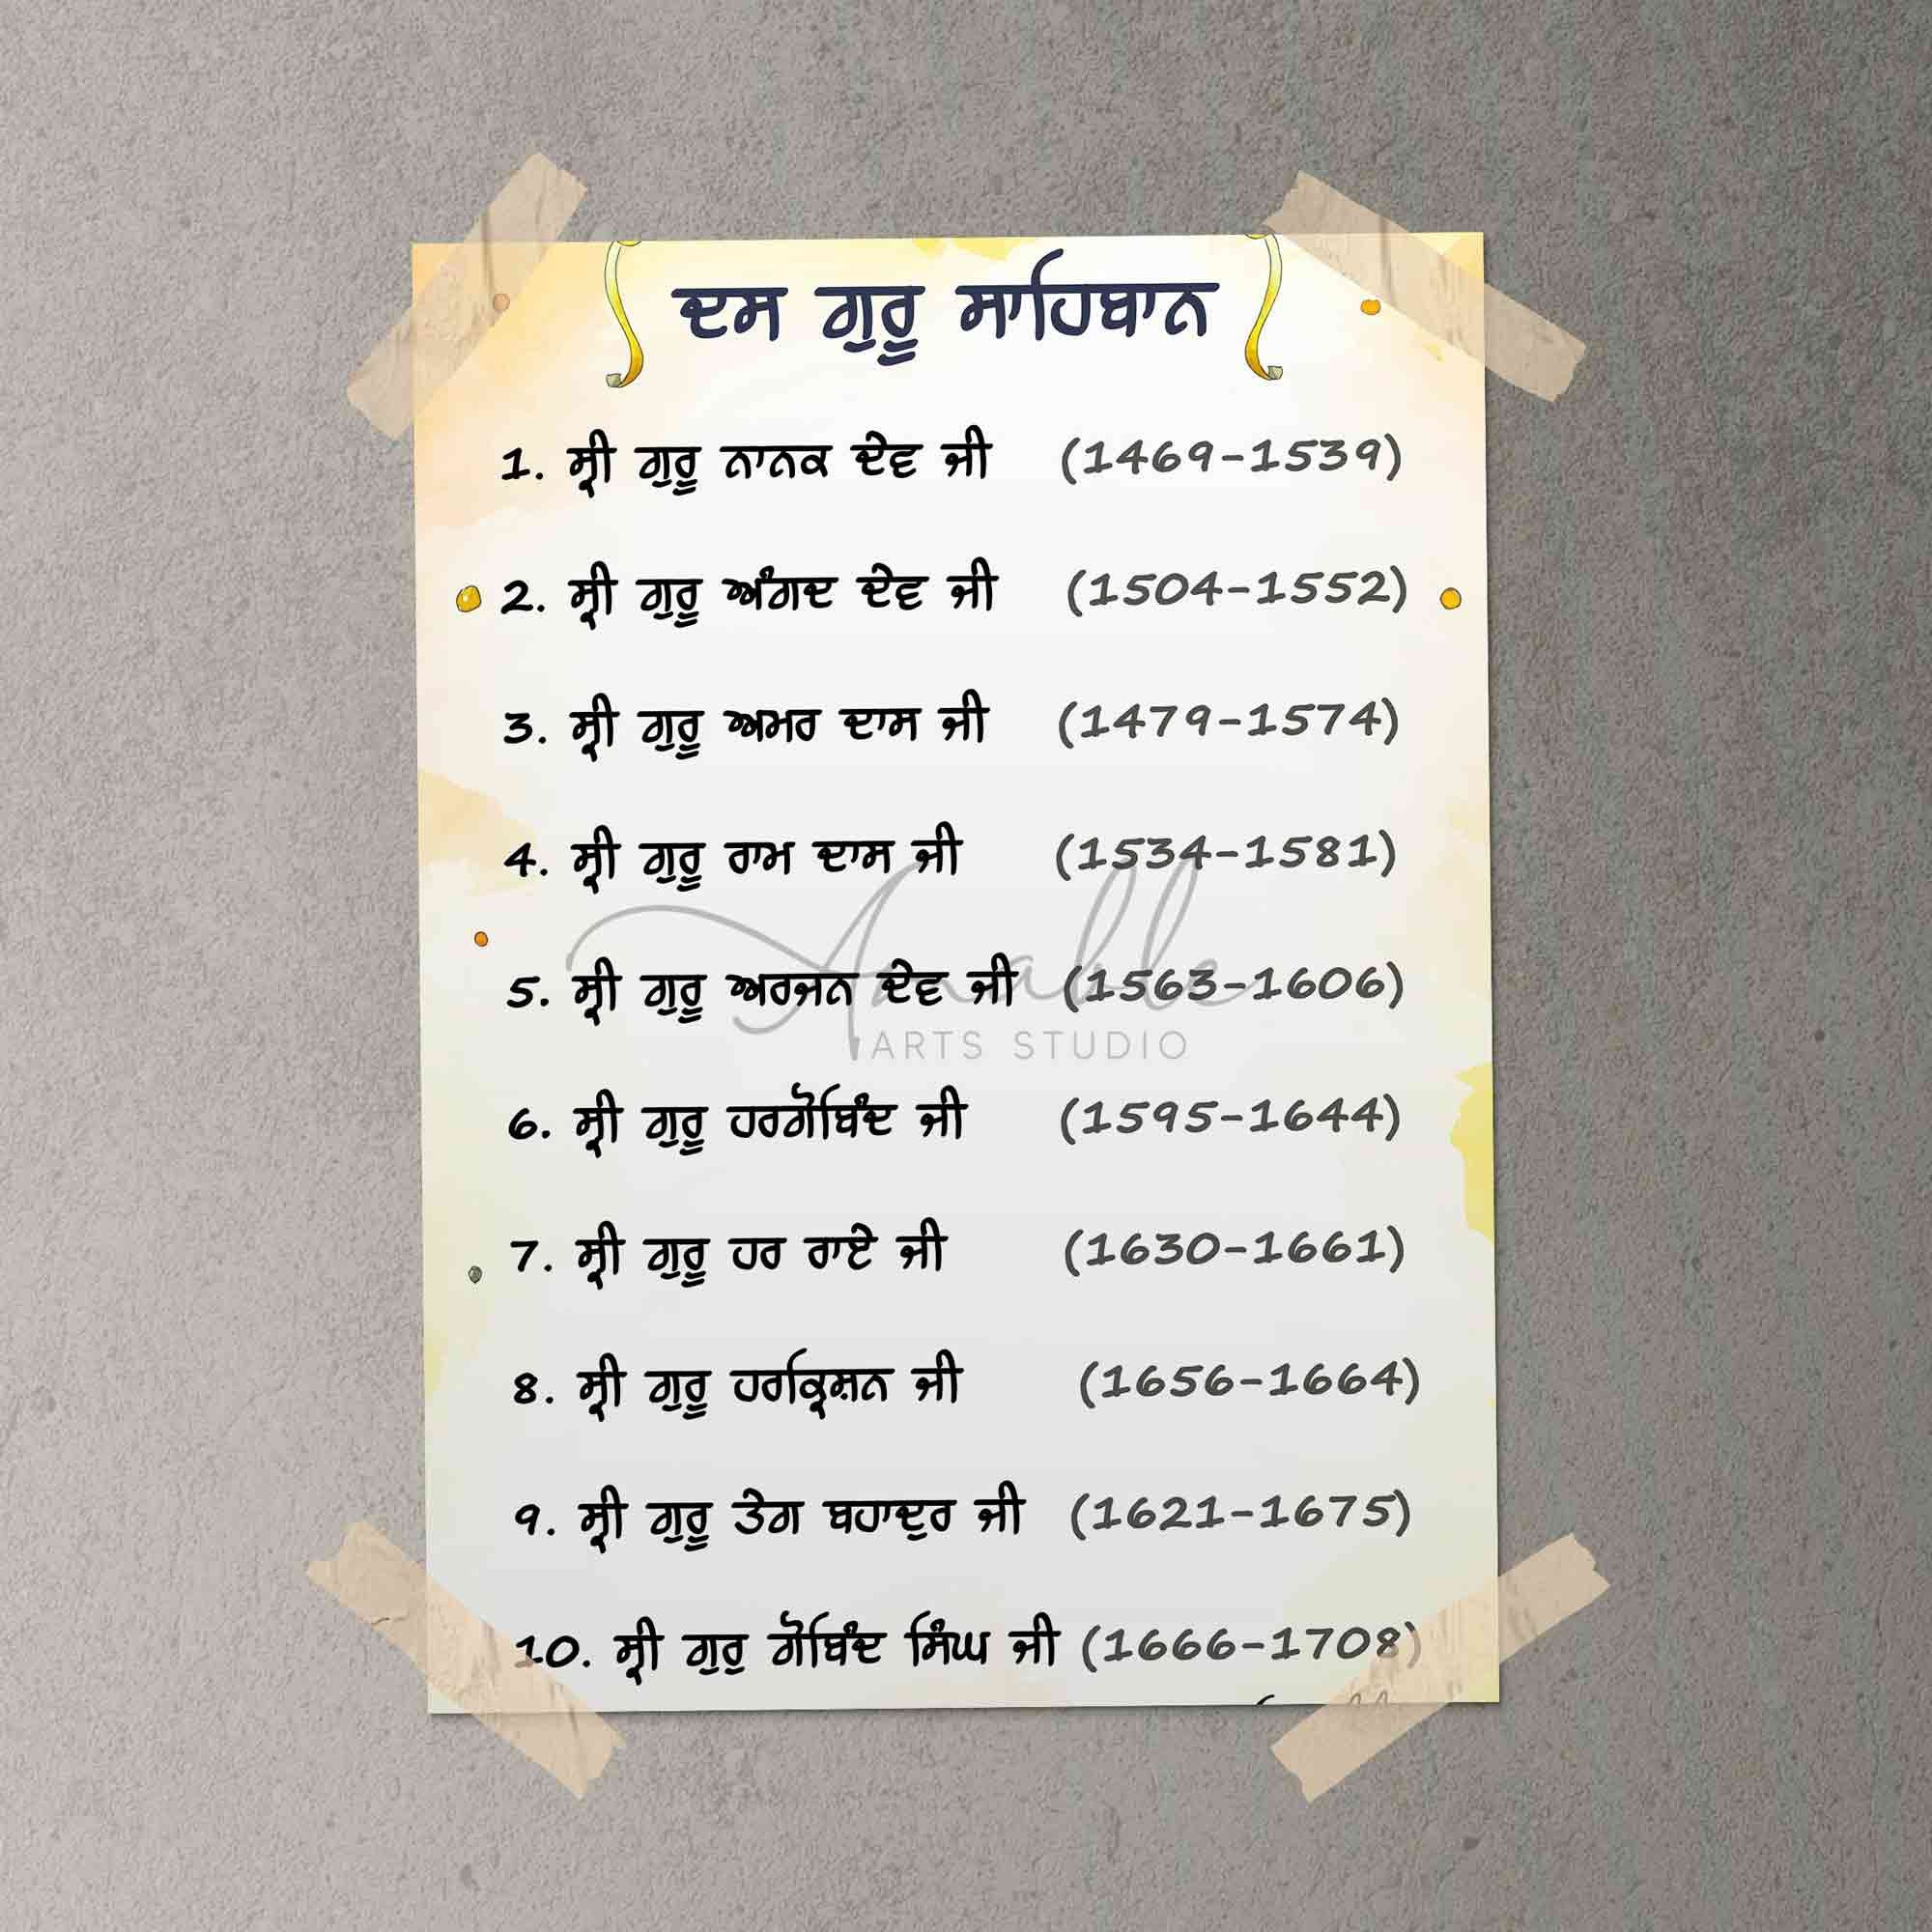 ਦਸ ਗੁਰੂ ਸਾਹਿਬਾਨ
1. ਸ੍ਰੀ ਗੁਰੂ ਨਾਨਕ ਦੇਵ ਜੀ (1469-1539)
2. ਸ੍ਰੀ ਗੁਰੂ ਅੰਗਦ ਦੇਵ ਜੀ (1504-1552)
3. ਸ੍ਰੀ ਗੁਰੂ ਅਮਰ ਦਾਸ ਜੀ (1479-1574)
4. ਸ੍ਰੀ ਗੁਰੂ ਰਾਮ ਦਾਸ ਜੀ (1534-1581)
5. ਸ੍ਰੀ ਗੁਰੂ ਅਰਜਨ ਦੇਵ ਜੀ (1563-1606)
ARTS STUDIO
6. ਸ੍ਰੀ ਗੁਰੂ ਹਰਗੋਬਿੰਦ ਜੀ (1595-1644)
7. ਸ੍ਰੀ ਗੁਰੂ ਹਰ ਰਾਏ ਜੀ (1630-1661)
8. ਸ੍ਰੀ ਗੁਰੂ ਹਰਕ੍ਰਿਸ਼ਨ ਜੀ (1656-1664)
9. ਸ੍ਰੀ ਗੁਰੂ ਤੇਗ ਬਹਾਦੁਰ ਜੀ (1621-1675)
10. ਸ੍ਰੀ ਗੁਰੁ ਗੋਬਿੰਦ ਸਿੰਘ ਜੀ (1666-1708)